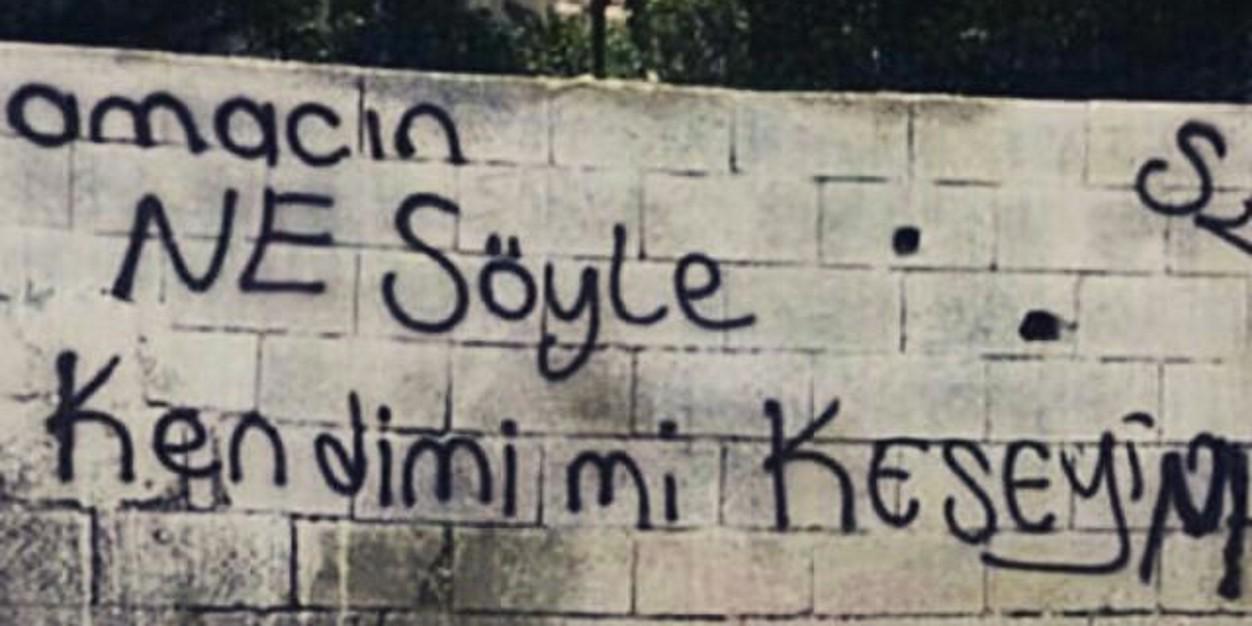 amacın
NE Söyle
Kendimi mi KESEYİM